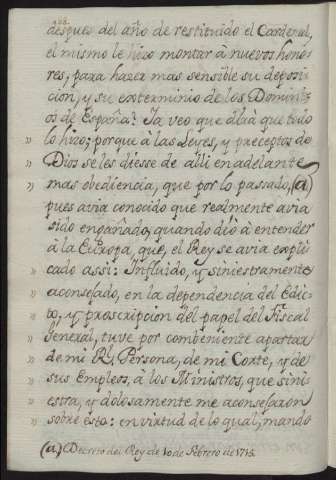 despues del año de restituido el Cardenal,
el mismo le hizo montar à nuevos hono-
res; para hazer mas sensible su deposi-
cion, y su exterminio de los Domini-
os de España? Ya veo que dirà que todo
» lo hizo; porque à las Leyes, y preceptos de
» Dios se les diesse de alli en adelante
» mas obediencia, que por lo passado, (a)
pues avia conocido que realmente avia
sido engañado, quando diò à entender
à la Europa, que, el Rey se avia expli-
» cado assi: Influido, y siniestramente
» aconsejado, en la dependencia del Edic-
» to, y proscripcion del papel del Fiscal
» General, tuve por combeniente apartar
» de mi Rl. Persona, de mi Corte, y de
» sus Empleos, à los Ministros, que sinie-
» stra, y dolosamente me aconsejaron
» sobre esto: en virtud de lo qual, mando
(a) Decreto del Rey de 10 de Febrero de 1715.